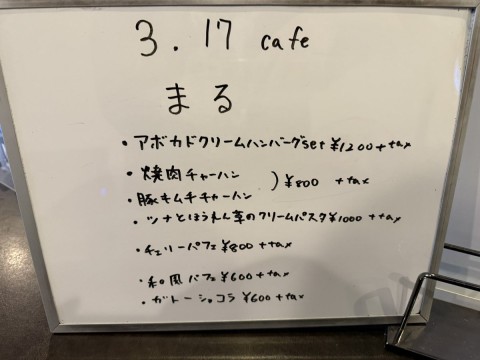 3.17 cafe
まる
・アボカドクリームハンバーグset ¥1200+tax
・焼肉チャーハン
)¥800 +tax
・豚キムチチャーハン
・ツナとほうれん草のクリームパスタ ¥1000 +tax
・チェリーパフェ ¥800+tax
・和風パフェ ¥600+tax
・ガトーショコラ ¥600+tax